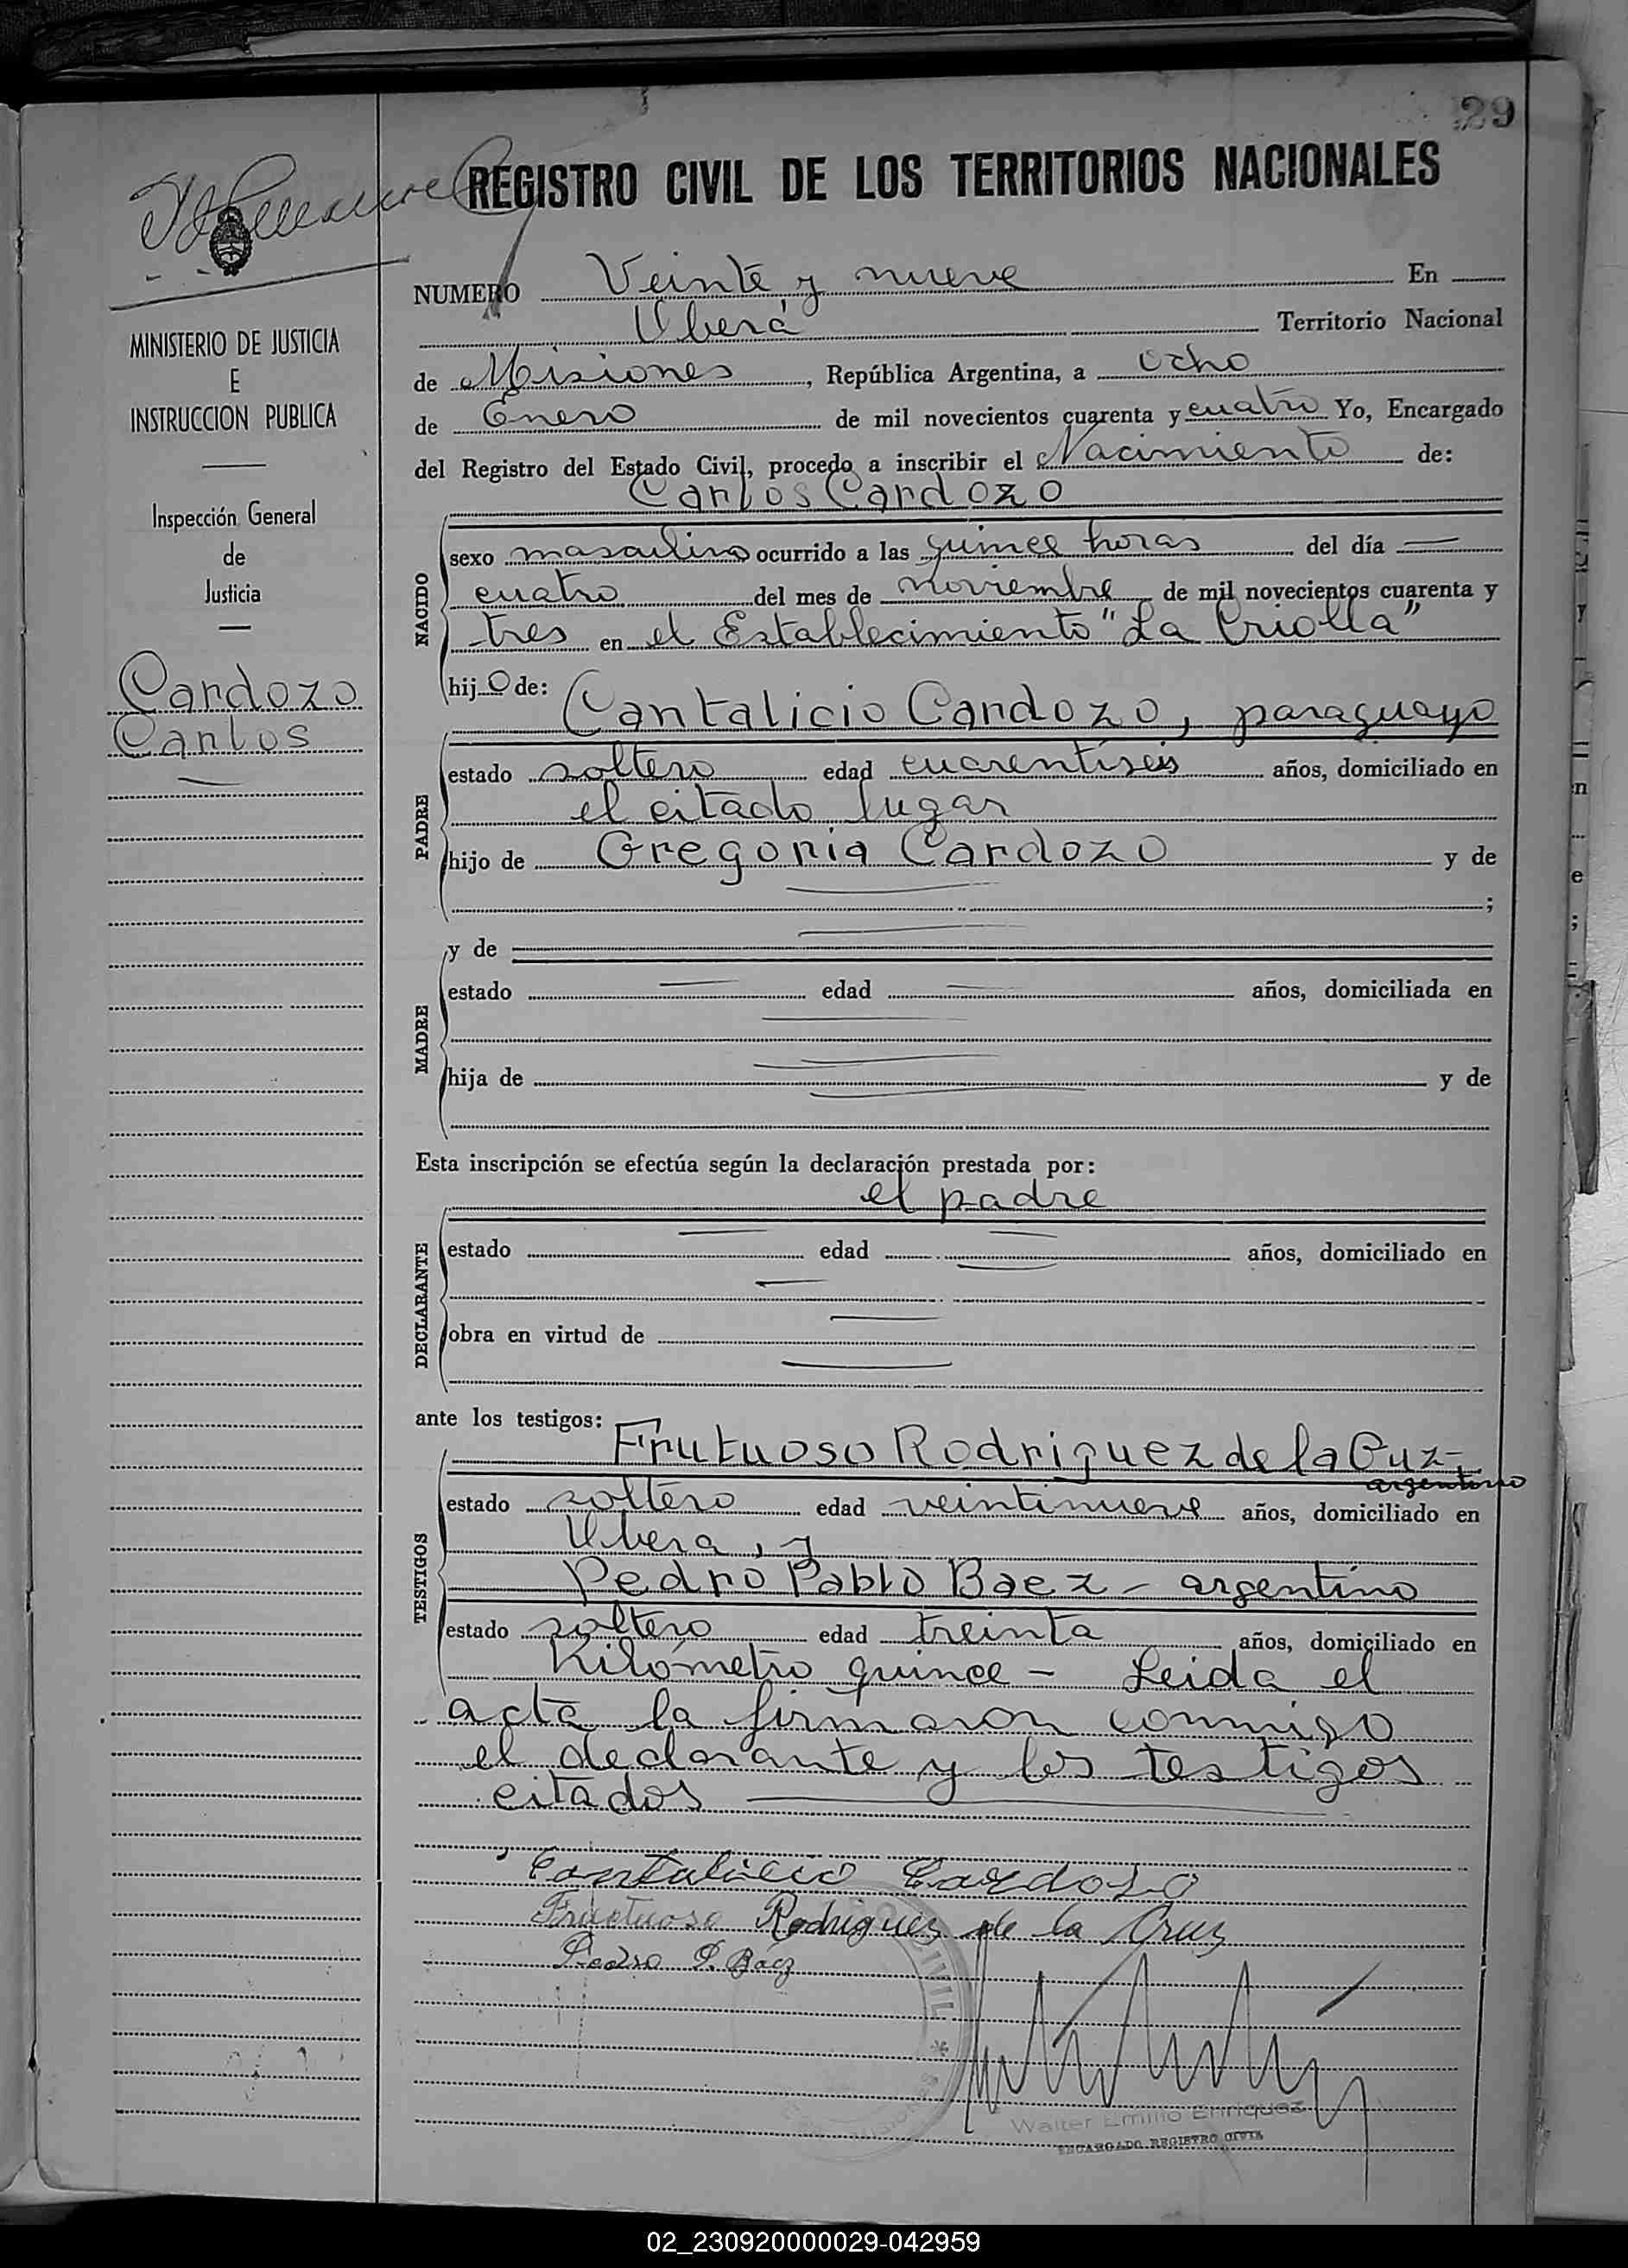 29
REGISTRO CIVIL DE LOS TERRITORIOS NACIONALES
MINISTERIO DE JUSTICIA
E
INSTRUCCION PUBLICA
Inspección General
de
Justicia
Cardozo
Carlos
NUMERO Veinte y nueve En
Uberá Territorio Nacional
de Misiones, República Argentina, a ocho
de Enero de mil novecientos cuarenta y cuatro Yo, Encargado
del Registro del Estado Civil, procedo a inscribir el Nacimiento de:
Carlos Cardozo
NACIDO
sexo masculino ocurrido a las quince horas del día
cuatro del mes de noviembre de mil novecientos cuarenta y
tres en el Establecimiento "La Criolla"
hijo de:
Cantalicio Cardozo, paraguayo
PADRE
estado soltero edad cuarentiseis años, domiciliado en
el citado lugar
hijo de Gregoria Cardozo y de
;
MADRE
y de
estado edad años, domiciliada en
hija de y de
Esta inscripción se efectúa según la declaración prestada por:
el padre
DECLARANTE
estado edad años, domiciliado en
obra en virtud de
ante los testigos:
Frutuoso Rodriguez de la Cuz-
argentino
TESTIGOS
estado soltero edad veintinueve años, domiciliado en
Ubera, y
Pedro Pablo Baez - argentino
estado soltero edad treinta años, domiciliado en
Kilómetro quince - Leida el
acta la firmaron conmigo
el declarante y los testigos
citados
Cantalicio Cardozo
Fructuoso Rodrigues de la Cruz
Pedro P. Báez
Walter Emilio Enriquez
ENCARGADO REGISTRO CIVIL
02_230920000029-042959